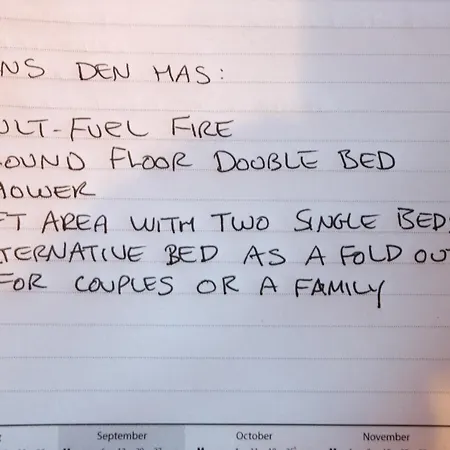 NS DEN HAS:
ULT-FUEL FIRE
OUND FLOOR DOUBLE BED
HOWER
FT AREA WITH TWO SINGLE BEDS
TERNATIVE BED AS A FOLD OUT
FOR COUPLES OR A FAMILY
September October November